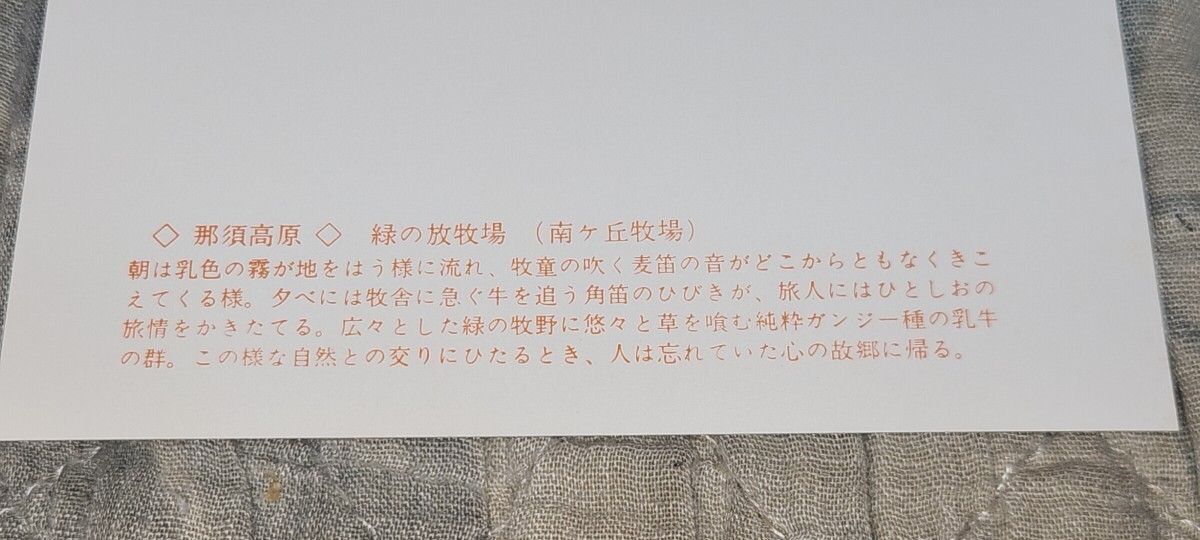 ◇ 那須高原 ◇　緑の放牧場　（南ヶ丘牧場）
朝は乳色の霧が地をはう様に流れ、牧童の吹く麦笛の音がどこからともなくきこ
えてくる様。夕べには牧舎に急ぐ牛を追う角笛のひびきが、旅人にはひとしおの
旅情をかきたてる。広々とした緑の牧野に悠々と草を喰む純粋ガンジー種の乳牛
の群。この様な自然との交りにひたるとき、人は忘れていた心の故郷に帰る。